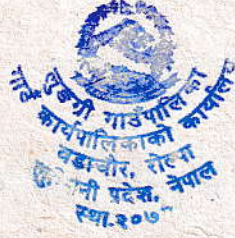 लुङग्री गाउँपालिका
गाउँ कार्यपालिकाको कार्यालय
वडाचौर, रोल्पा
प्रदेश, नेपाल
स्था.२०७